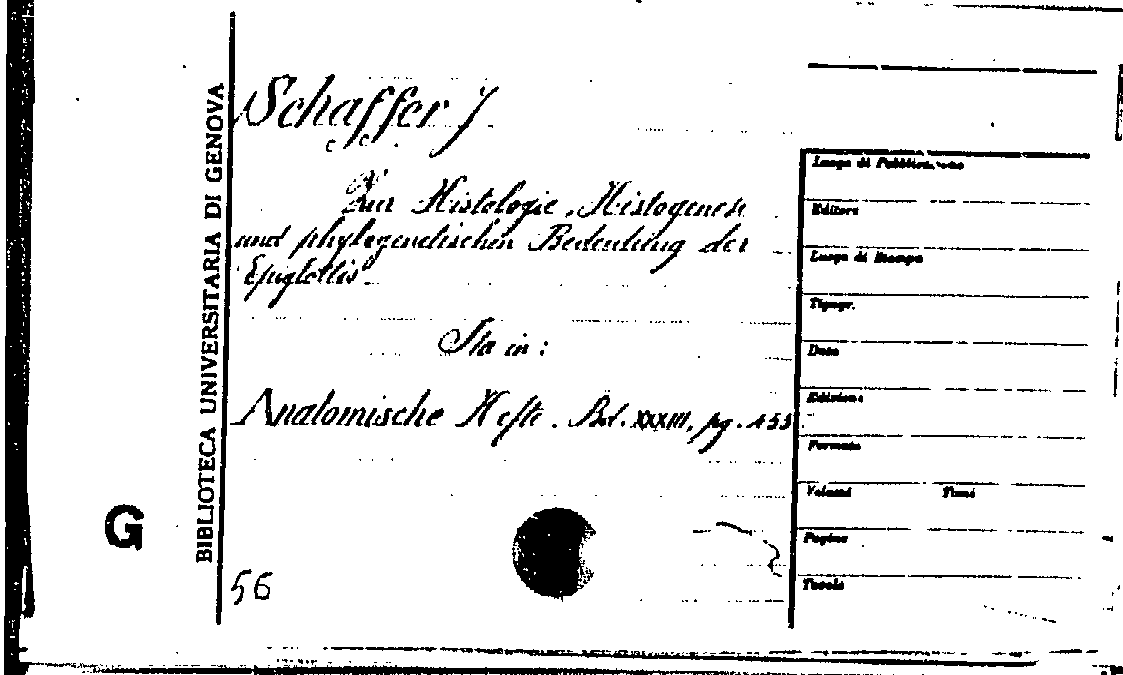 Schaffer J
Zur Histologie, Histogenese
und phylogenetischen Bedeutung der
Epiglottis.
Sta in:
Anatomische Hefte. Bd. XXXIII, pg. 455
56
G
BIBLIOTECA UNIVERSITARIA DI GENOVA
Luogo di Pubblicazione
Editore
Luogo di Stampa
Tipogr.
Data
Edizione
Formato
Volumi Tomi
Pagine
Tavole